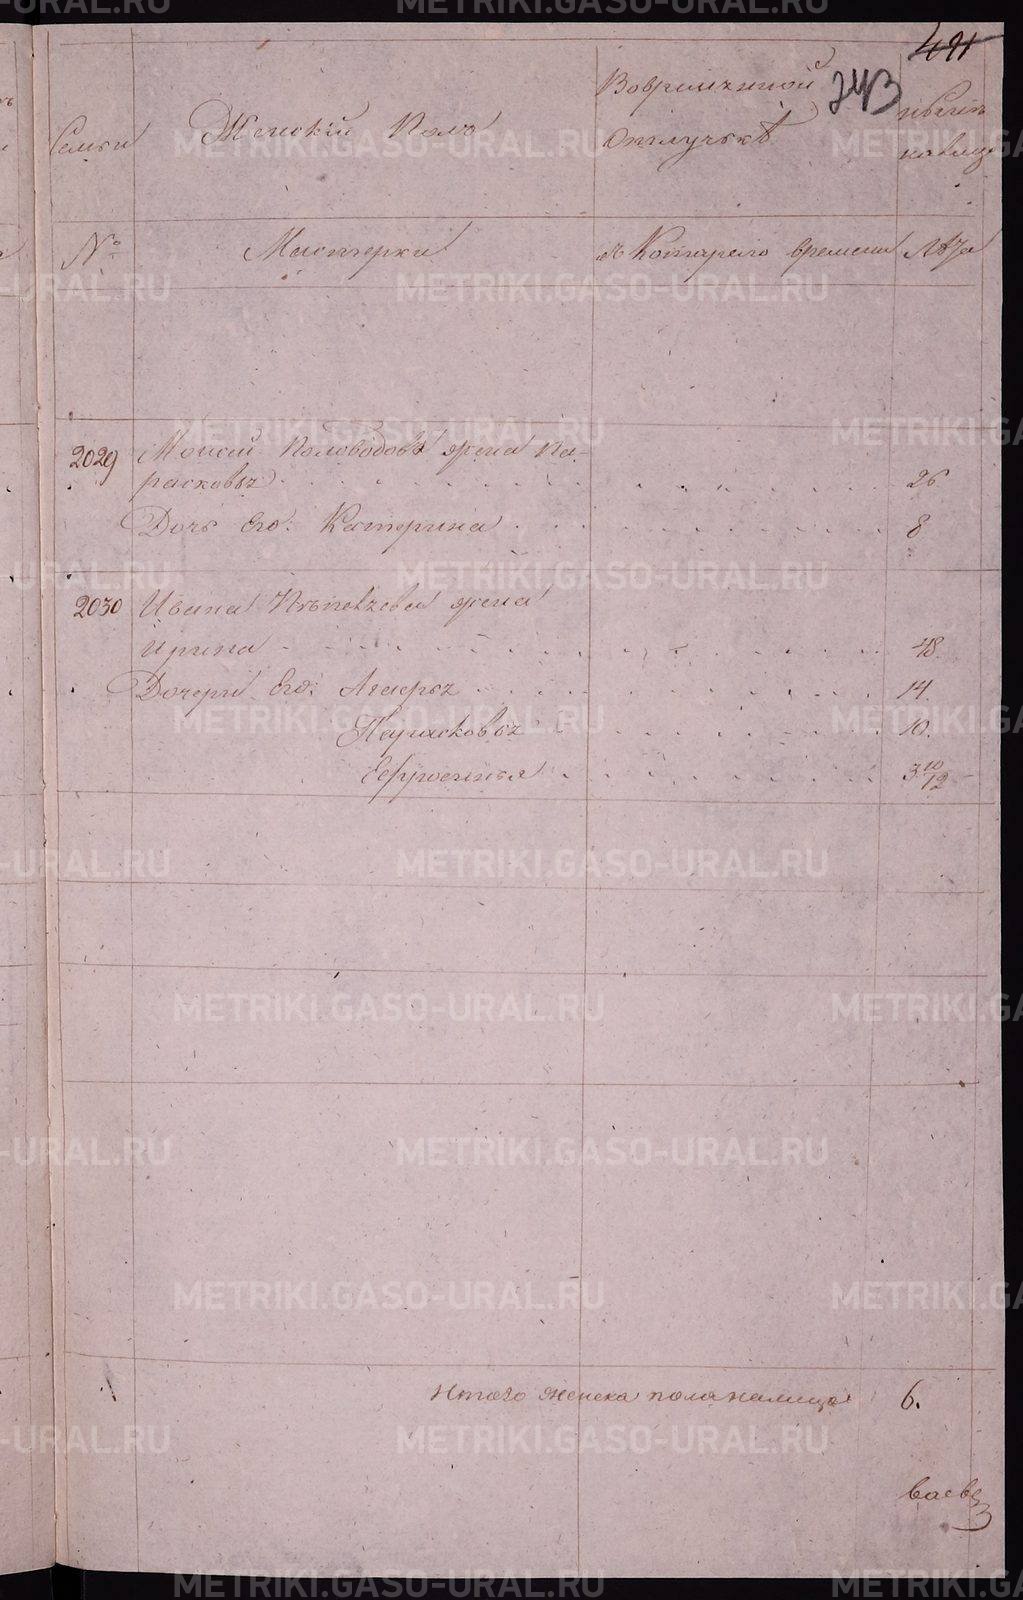 491
243
Семьи
Женскій Полъ
Вовременной
Отлучькѣ
ныне
налицо
№
Мастерки
съ Котораго времени
Лѣта
2029 Моисей Половодовъ жена Па-
расковья 26
Дочь Его: Катерина 8
2030 Ивана жена
Ирина 48.
Дочери Его: Агаерья 14.
Парасковья 10.
Ефросинья 3 10/12
Итого женска пола налицо 6.
METRIKI.GASO-URAL.RU